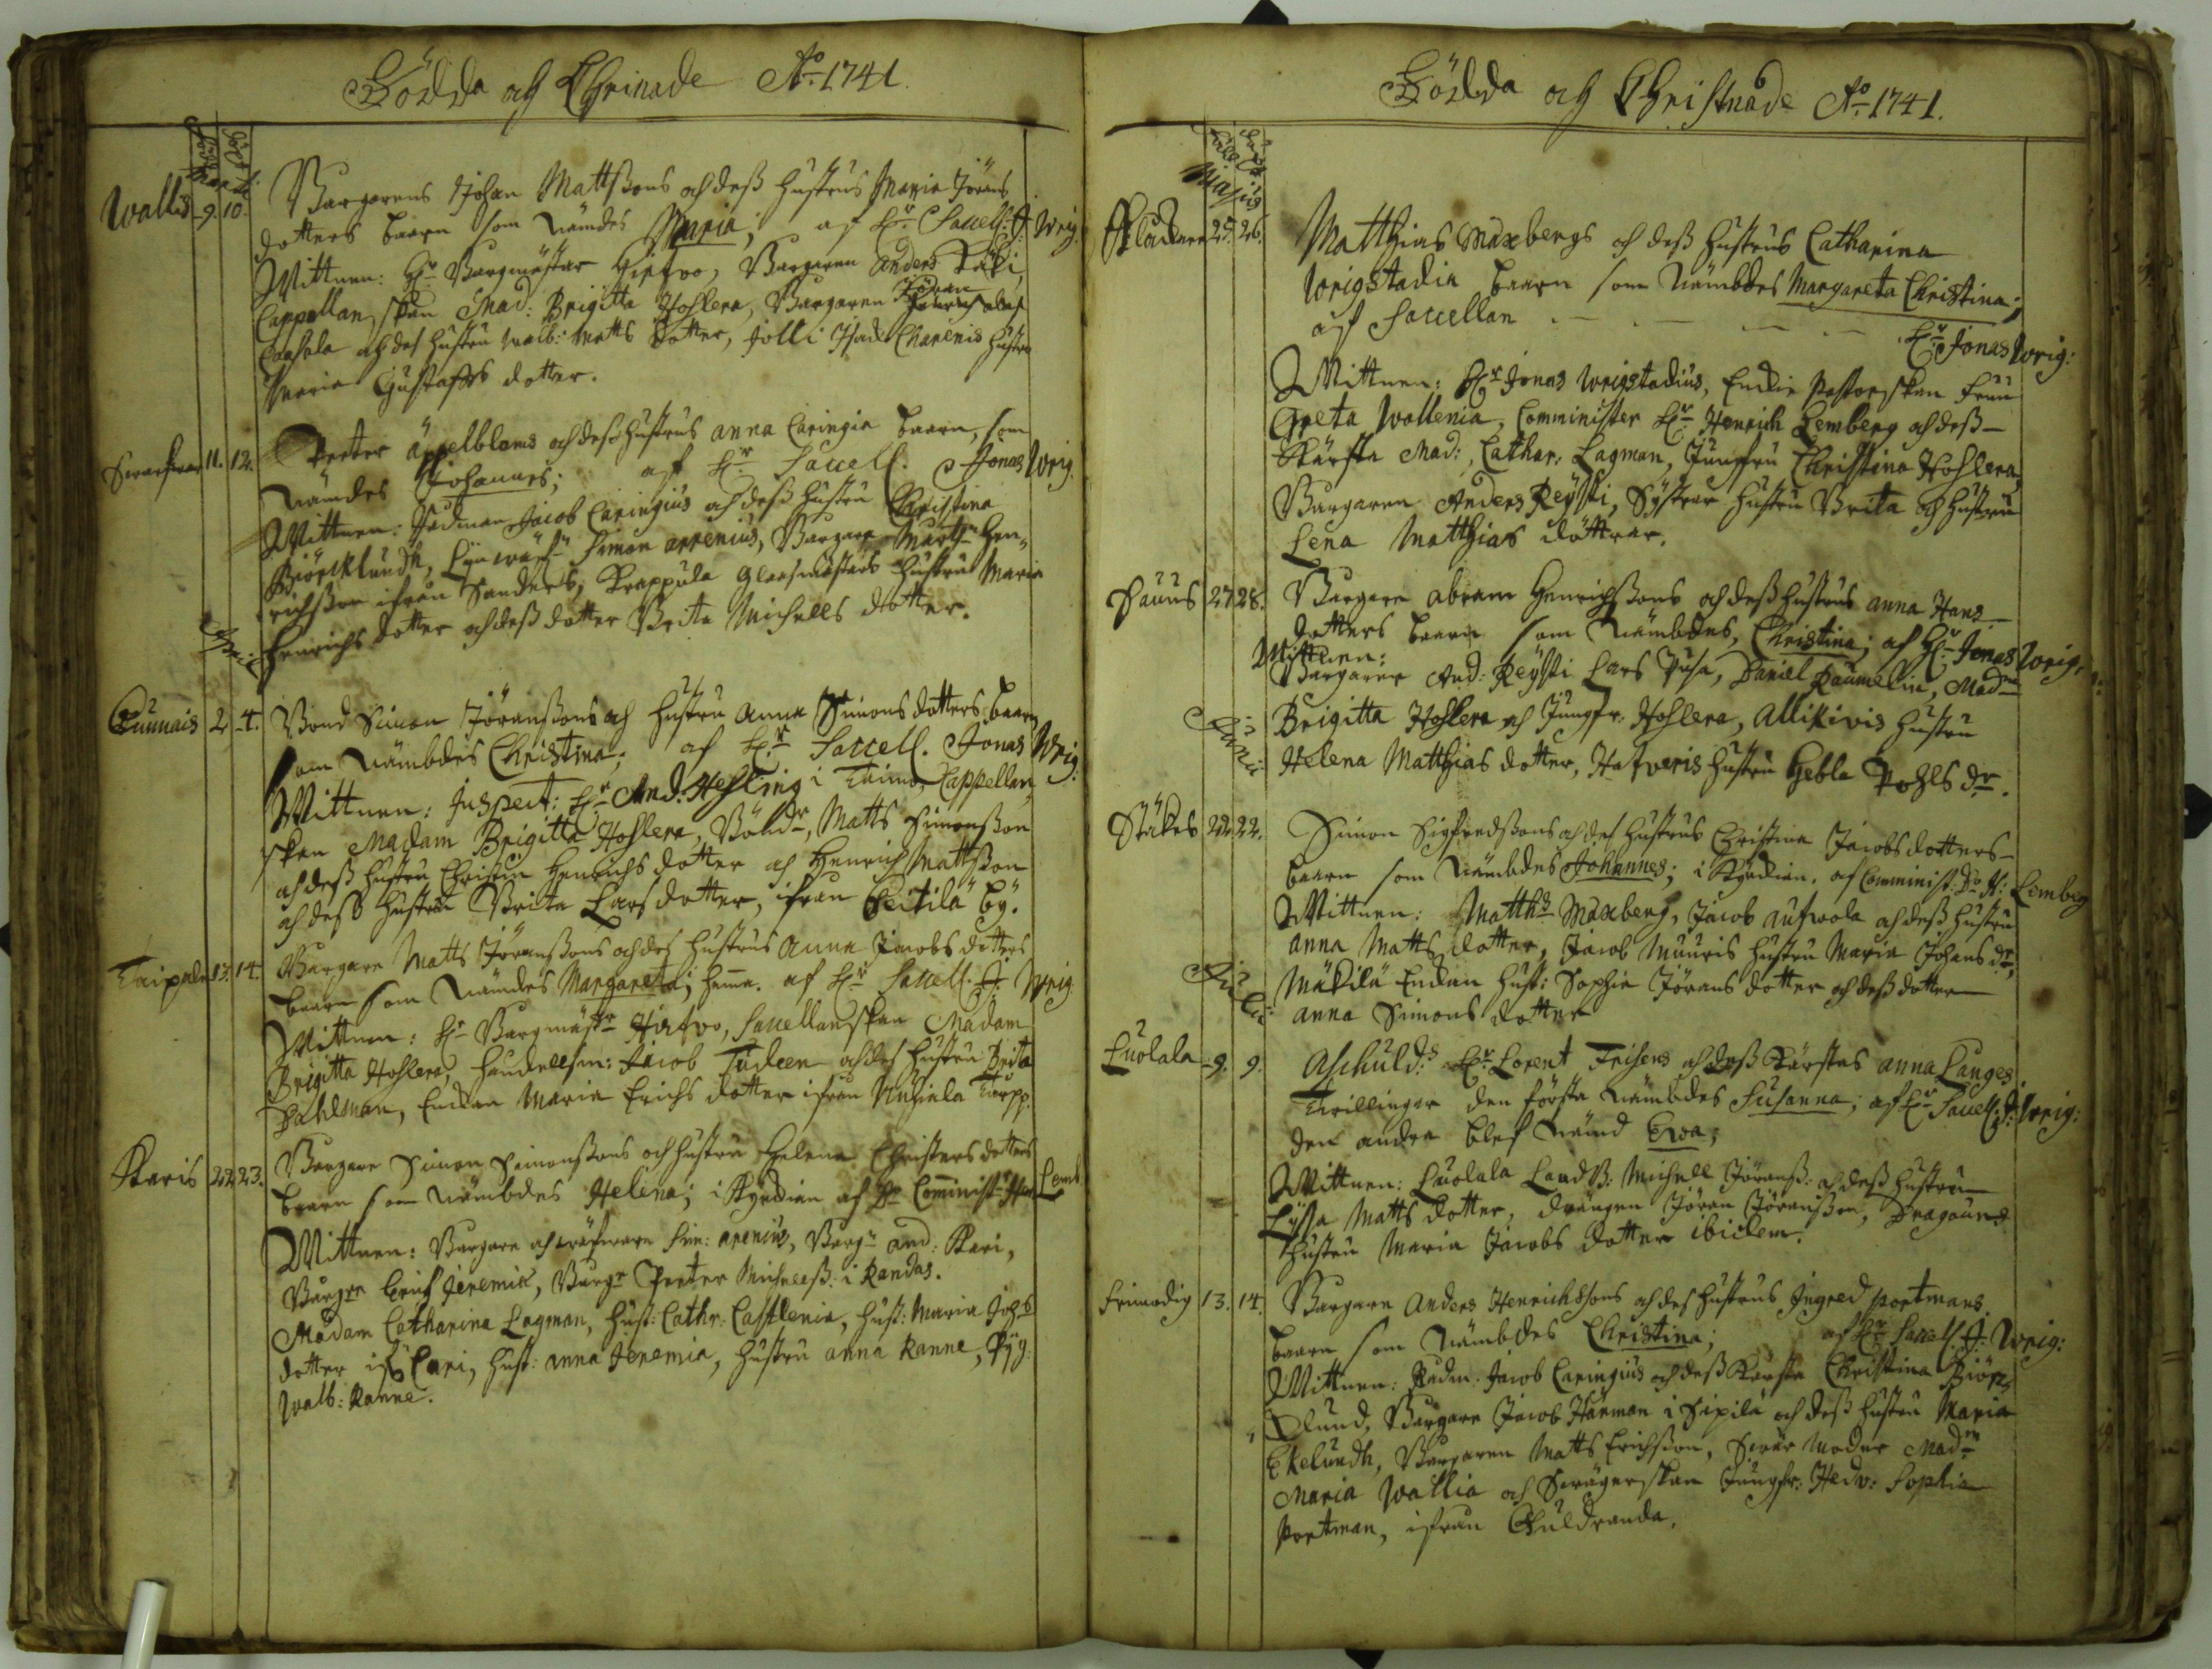 Födda och Chrinade Ao 1741.
Wallis 9. 10. Borgarens Johan Mattssons och dess hustrus Maria Jörans
dotters baarn som nämdes Maria; af Hr Sacell: J: Wrig.
Wittnen: Hr Borgmästar Hirfvo, Borgaren Anders
Cappellan skan Mad: Brigitta Hohlera, Borgaren Jöran
och des hustru Walb: Matts dotter, Charenis hustru
Maria Gustafs dotter.
11. 12. Petter Äppelbloms och dess hustrus Anna Caringia baarn, som
nämdes Johannes; af Hr Sacell. Jonas Wrig.
Wittnen: Rådman Jacob Caringius och dess hustru Christina
Biörcklundh, Simon Arenius, Borgare Mårts Hen-
richsson ifrån Sanders, Krappula Glasmästars hustru Maria
Henrichs dotter och dess dotter Brita Michells dotter.
Aprilis
Cunnais 2 4. Bond Simon Jöranssons och hustru Anna Simons dotters baarn
som nämbdes Christina; af Hr Sacell. Jonas Wrig:
Wittnen: Inspect: Hr And: Hesling i Taimo, Cappellan
skan Madam Brigitta Hohlera, Matts Simonsson
och dess hustru Christin Henrichs dotter och Henrich Mattsson
och dess hustru Brita Lars dotter, ifrån Ceikilä by.
Taipale 13. 14. Borgare Matts Jöranssons och des hustrus Anna Jacobs dotters
baarn som nämdes Margareta; hema. af Hr Sacell. J: Wrig.
Wittnen: Hr Borgmästr Hirfvo, Sacellanskan Madam
Brigitta Hohlera, Handelsm: Jacob Tudeen och des hustru Brita
Dahlman, Enckan Maria Erichs dotter ifrån Torpp.
Karis 22 23. Borgare Simon Simonssons och hustru Helena Christers dotters
baarn som nämbdes Helena; i Kyrckian af Hr Comminist: Lemb
Wittnen: Borgare och Sim: Arenius, Borgn And: Kari,
Borgrn Erich Jeremik, Borgr Petter Michelss: i Randas.
Madam Catharina Lagman, hust: Cathr: Castlenia, hust: Maria Johs
dotter Cari, hust: Anna Jeremia, hustru Anna Ranne, Pijg:
Walb: Ranne.
Födda och Christnade Ao 1741.
Majus
Klockare 25. 26. Matthias Maxbergs och dess hustrus Catharina
Wrigstadia baarn som nämbdes Margareta Christina;
af Sacellan Hr Jonas Wrig:
Wittnen: Hr Jonas Wrigstadius, Enckie Pastorskan Fruu
Greta Wallenia, Comminister Hr Henrich Lemberg och dess
Kärsta Mad: Cathar: Lagman, Jungfru Christina Hohlera,
Borgaren Anders Reijssi, Systrar hustru Brita och hustru
Lena Matthias döttrar.
Pauus 27 28. Borgare Abram Henrichssons och dess hustrus Anna Hans
dotters baarn som nämbdes, Christina; af Hr Jonas Wrig.
Wittnen:
Borgaren And: Reijssi Lars Pusa, Daniel Daumelin, Madme
Brigitta Hohlera och Jungfr: Hohlera, Allikivis hustru
Helena Matthias dotter, Hafveris hustru Hebla Pohls dr.
Junii
Stähes 22 22. Simon Sigfredssons och des hustrus Christina Jacobs dotters
baarn som nämbdes Johannes; i Kyrckian. af Comminist: Dn H: Lemberg
Wittnen: Matths Maxberg, Jacob Aufwola och dess hustru
Anna Matts dotter, Jacob Muuris hustru Maria Johans dr,
Mäkilä Enckan Hust: Sophia Jörans dotter och dess dotter
Anna Simons dotter
Julii
Luolala 9. 9. Aschuld: Hr Lorent Frisens och dess Kärstas Anna Langes
Thrillingar den första nämbdes Susanna; af Hr Sacell: J: Wrig:
den andra blef nämd Ewa;
Wittnen: Luolala Landb: Michell Jöranss: och dess hustru
Lijsa Matts dotter, drängen Jöran Jöransson, Dragouns
hustru Maria Jacobs dotter ibidem.
Frimodig 13. 14. Borgare Anders Henrichssons och des hustrus Ingred Portmans
baarn som nämbdes Christina; af Hr Sacell. J. Wrig:
Wittnen: Rådm: Jacob Caringius och dess Kärsta Christina Biörk-
lund, Borgare Jacob Harman i Sipila och dess hustru Maria
Ekelundh, Borgaren Matts Erichsson, Swär Moder Madm
Maria Wallia och Swägerskan Jungfr: Hedv: Sophia
Portman, ifrån Guldranda.